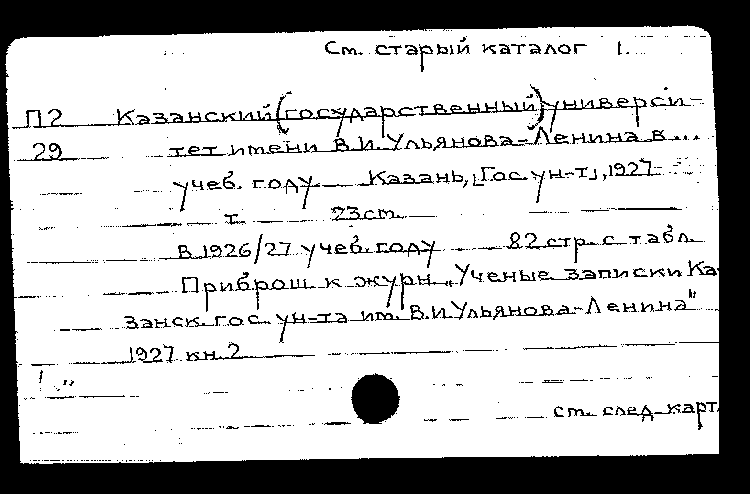 Ст. старый каталог 1.
П2 Казанский (государственный) универси-
29 тет имени В.И. Ульянова-Ленина в...
учеб. году. Казань, [Гос. ун-т], 1927-
т. 23 ст.
В 1926/27 учеб. году 82 стр. с табл.
Приброш. к журн. „Ученые записки Ка-
занск. гос. ун-та им. В.И. Ульянова-Ленина"
1927 кн. 2
ст. след. карт.